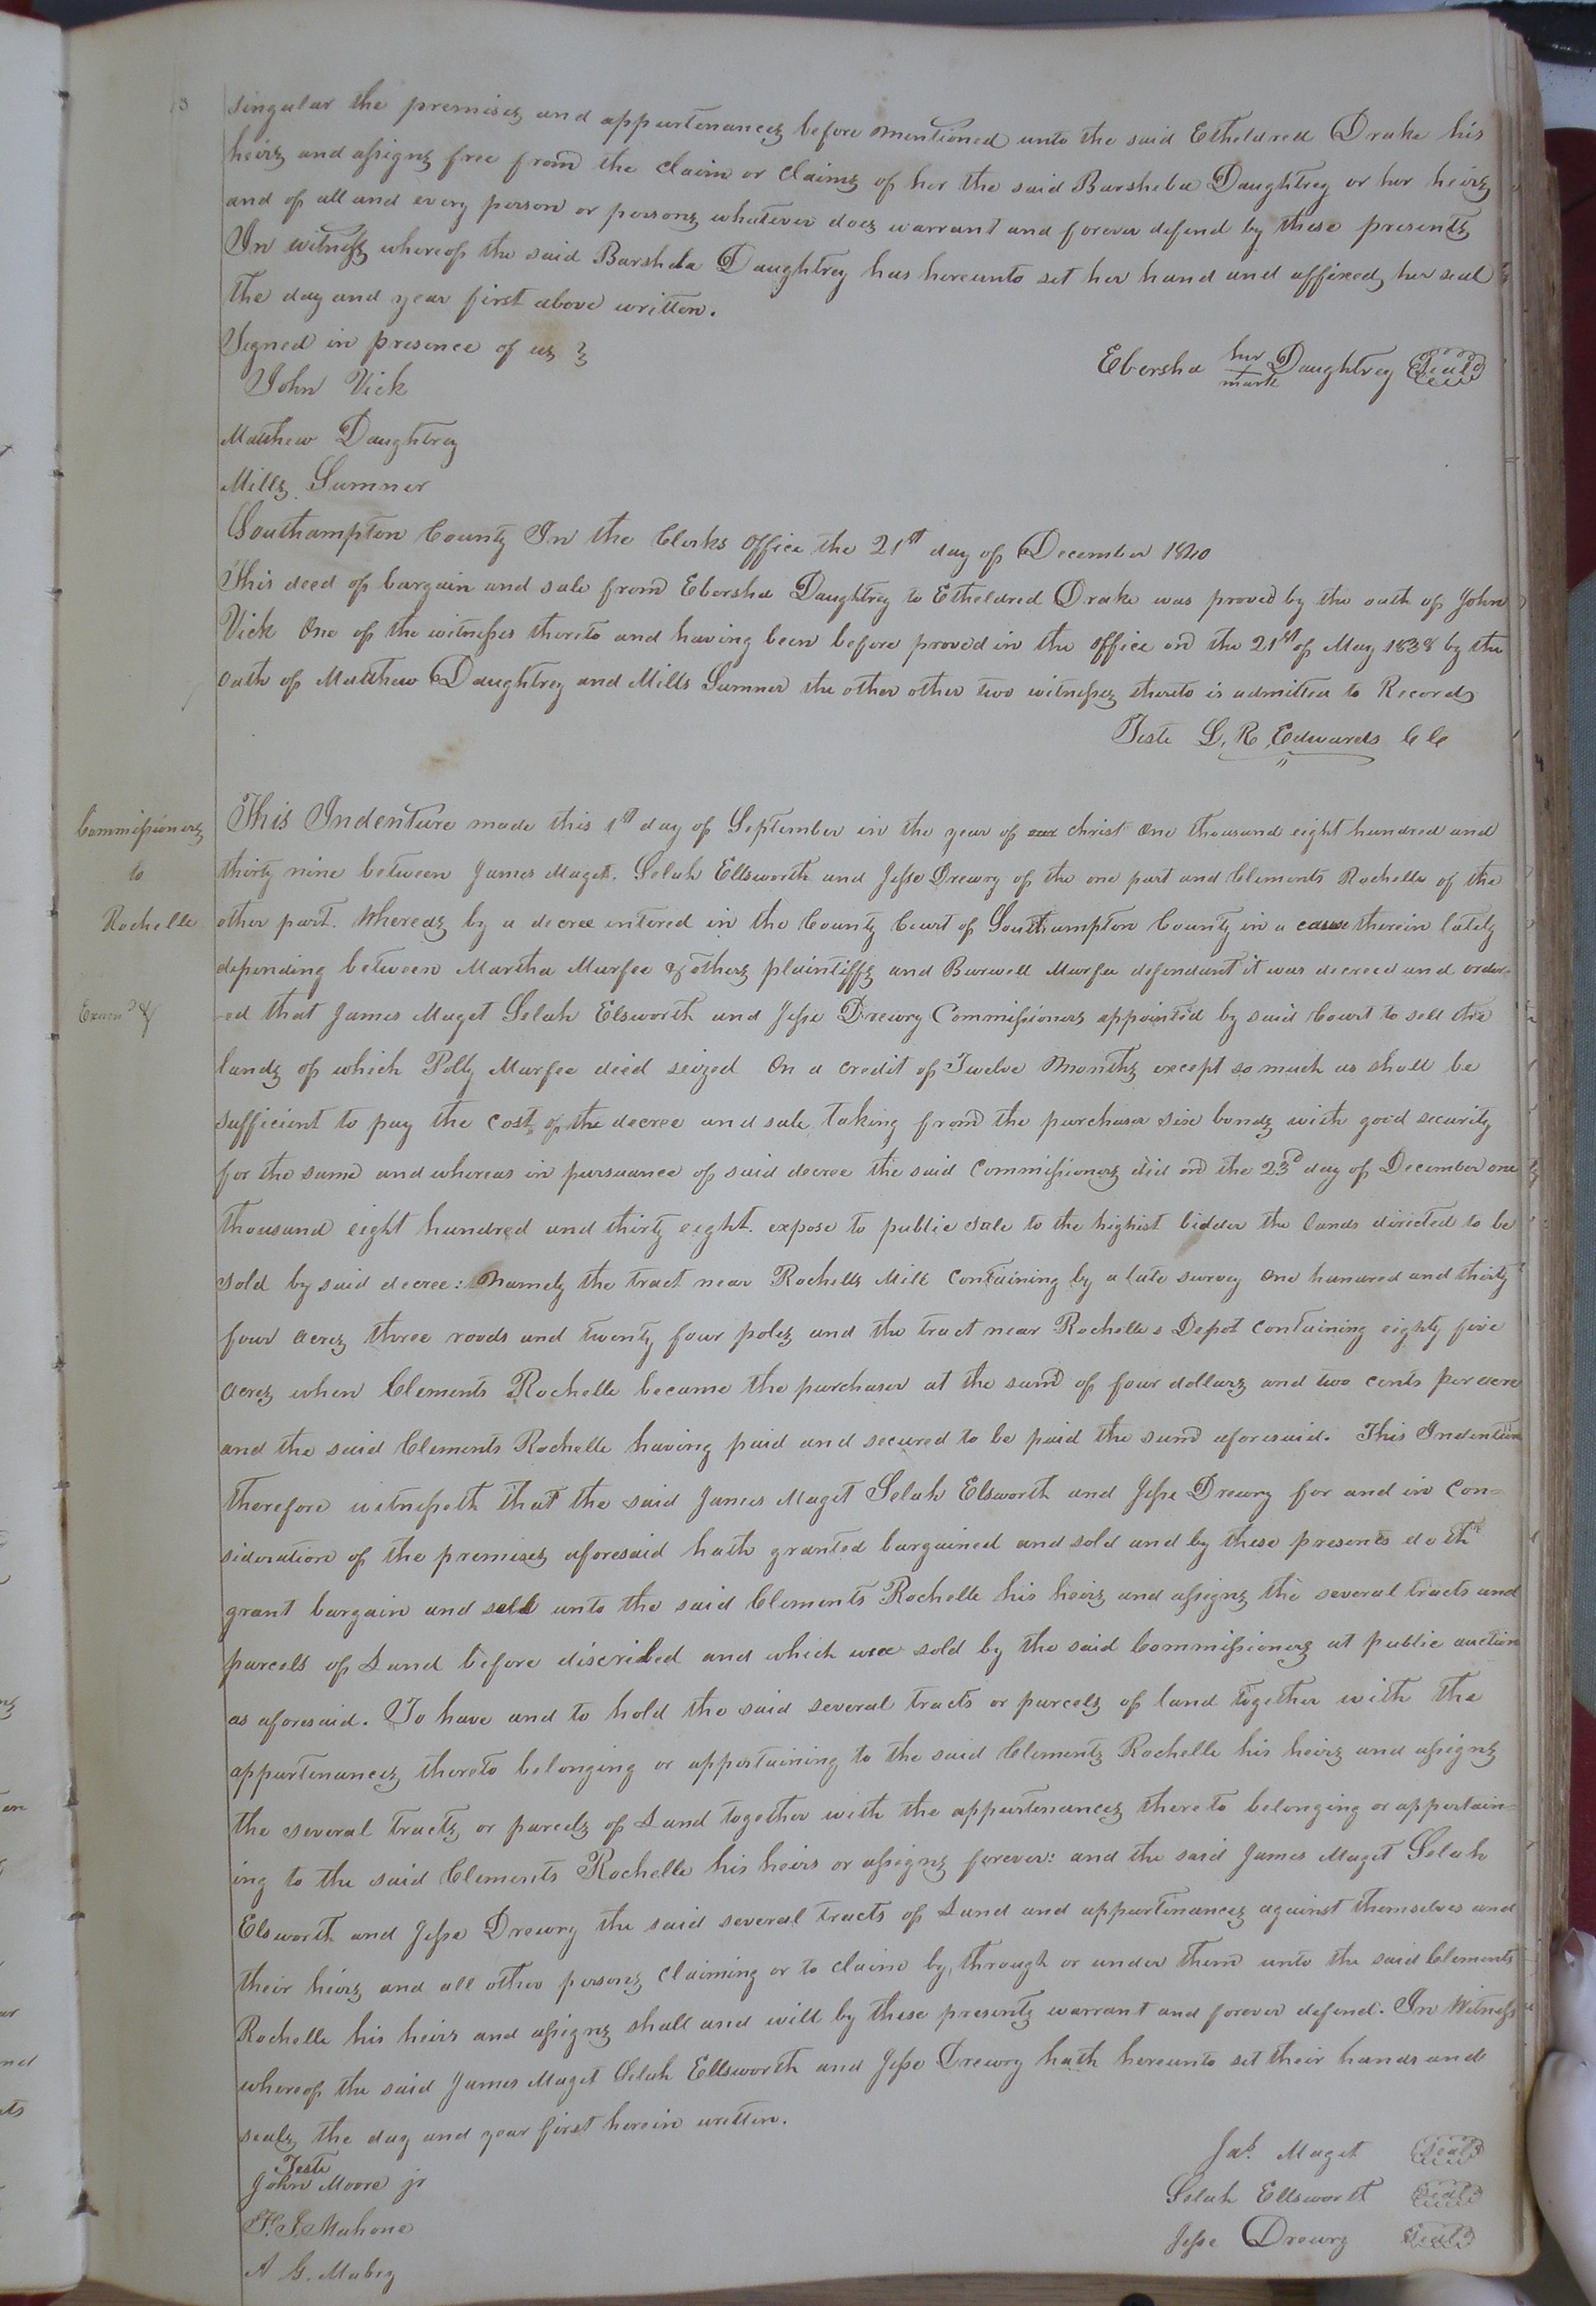 singular the premises and appurtenances before mentioned unto the said Etheldred Drake his
heirs and assigns free from the claim or claims of her the said Barsheba Daughtrey or her heirs
and of all and every person or persons whatever does warrant and forever defend by these presents
In witness whereof the said Barsheba Daughtrey has hereunto set her hand and affixed her seal
the day and year first above written.
Signed in presence of us
Ebersha her mark Daughtrey Seal
John Vick
Matthew Daughtrey
Mills Sumner
Southampton County In the Clerks office the 21st day of December 1840
This deed of bargain and sale from Ebersha Daughtrey to Etheldred Drake was proved by the oath of John
Vick One of the witnesses thereto and having been before proved in the office on the 21st of May 1838 by the
Oath of Matthew Daughtrey and Mills Sumner the other other two witnesses thereto is admitted to Record
Teste L. R. Edwards C C
Commissioners
to
Rochelle
This Indenture made this 1st day of September in the year of our christ One thousand eight hundred and
thirty nine between James Maget. Selah Ellsworth and Jesse Drewry of the one part and Clements Rochelle of the
other part. Whereas by a decree entered in the County Court of Southampton County in a cause therein lately
depending between Martha Murfee & others plaintiffs and Burwell Murfee defendant it was decreed and order-
-ed that James Maget Selah Elsworth and Jesse Drewry Commissioners appointed by said Court to sell the
lands of which Polly Murfee died seized On a credit of Twelve Months except so much as shall be
sufficient to pay the Costs of the decree and sale taking from the purchaser six bonds with good security
for the same and whereas in pursuance of said decree the said Commissioners did on the 23d day of December one
thousand eight hundred and thirty eight. expose to public sale to the highest bidder the lands directed to be
sold by said decree: Namely the tract near Rochells Mill Containing by a late survey One hundred and thirty
four acres three roods and twenty four poles and the tract near Rochelles Depot Containing eighty five
acres when Clements Rochelle became the purchaser at the sum of four dollars and two cents per acre
and the said Clements Rochelle having paid and secured to be paid the sum aforesaid. This Indenture
therefore witnesseth that the said James Maget Selah Elsworth and Jesse Drewry for and in Con-
sideration of the premises aforesaid hath granted bargained and sold and by these presents doth
grant bargain and sell unto the said Clements Rochelle his heirs and assigns the several tracts and
parcels of Land before discribed and which was sold by the said Commissioners at public auction
as aforesaid. To have and to hold the said several tracts or parcels of land together with the
appurtenances thereto belonging or appertaining to the said Clements Rochelle his heirs and assigns
the several tracts or parcels of Land together with the appurtenances thereto belonging or appertain-
ing to the said Clements Rochelle his heirs or assigns forever: and the said James Maget Selah
Elsworth and Jesse Drewry the said several tracts of Land and appurtenances against themselves and
their heirs and all other persons claiming or to claim by, through or under them unto the said Clements
Rochelle his heirs and assigns shall and will by these presents warrant and forever defend. In Witness
whereof the said James Maget Selah Ellsworth and Jesse Drewry hath hereunto set their hands and
seals the day and year first herein written.
Teste
John Moore jr
Jas. Maget Seal
Selah Ellsworth Seal
F. J. Mahone
Jesse Drewry Seal
A G. Mabry